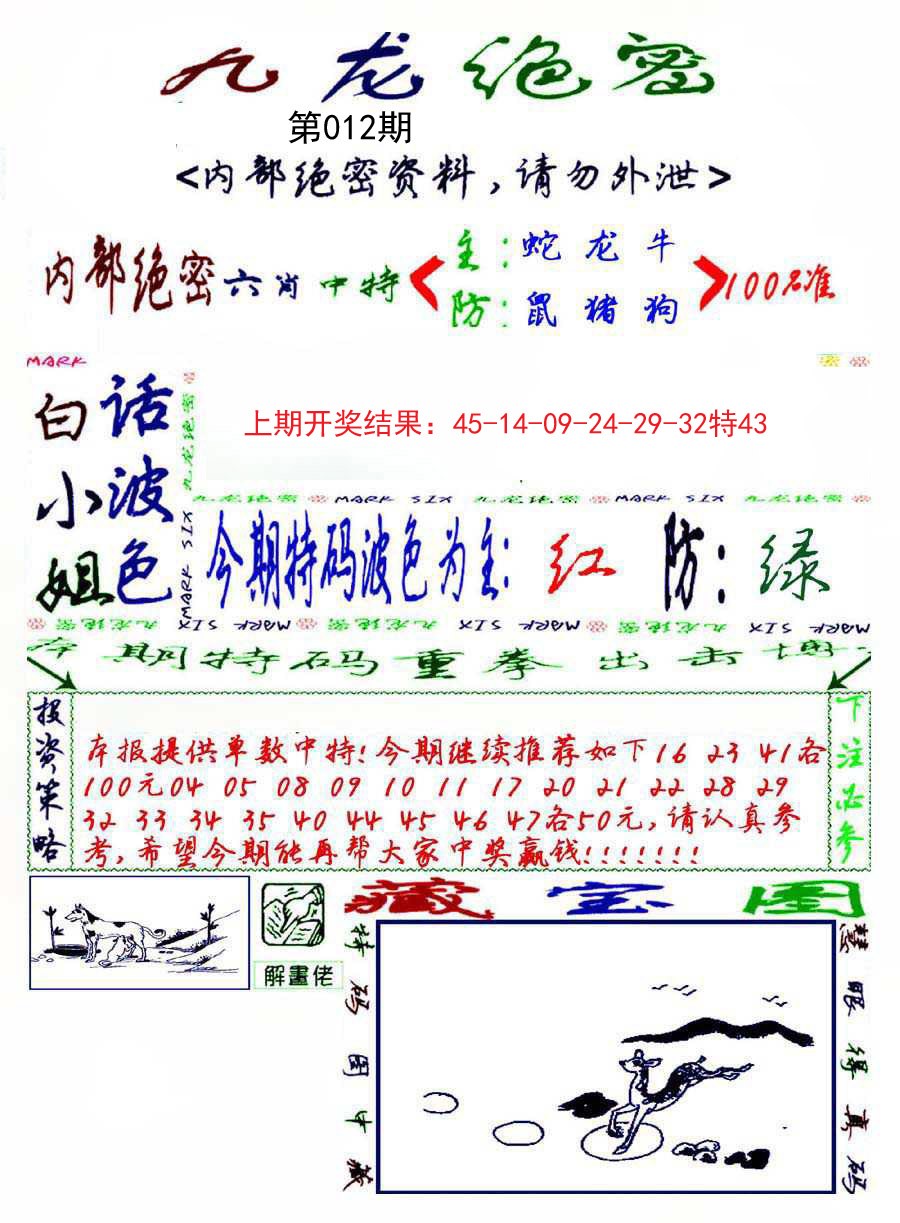 九龙绝密
第012期
<内部绝密资料,请勿外泄>
内部绝密六肖中特
主:蛇龙牛
防:鼠猪狗
100%准
MARK
白话小波姐色
九龙绝密
MARK SIX
上期开奖结果：45-14-09-24-29-32特43
九龙绝密 MARK SIX 九龙绝密 MARK SIX 九龙绝密
今期特码波色为主:红 防:绿
九龙绝密 MARK SIX 九龙绝密 MARK SIX 九龙绝密 MARK SIX
本期特码重拳出击博
投资策略
本报提供单数中特!今期继续推荐如下16 23 41各
100元04 05 08 09 10 11 17 20 21 22 28 29
32 33 34 35 40 44 45 46 47各50元,请认真参
考,希望今期能再帮大家中奖赢钱!!!!!!!
下注必参
解畫佬
藏宝图
特码图中藏
慧眼得真码